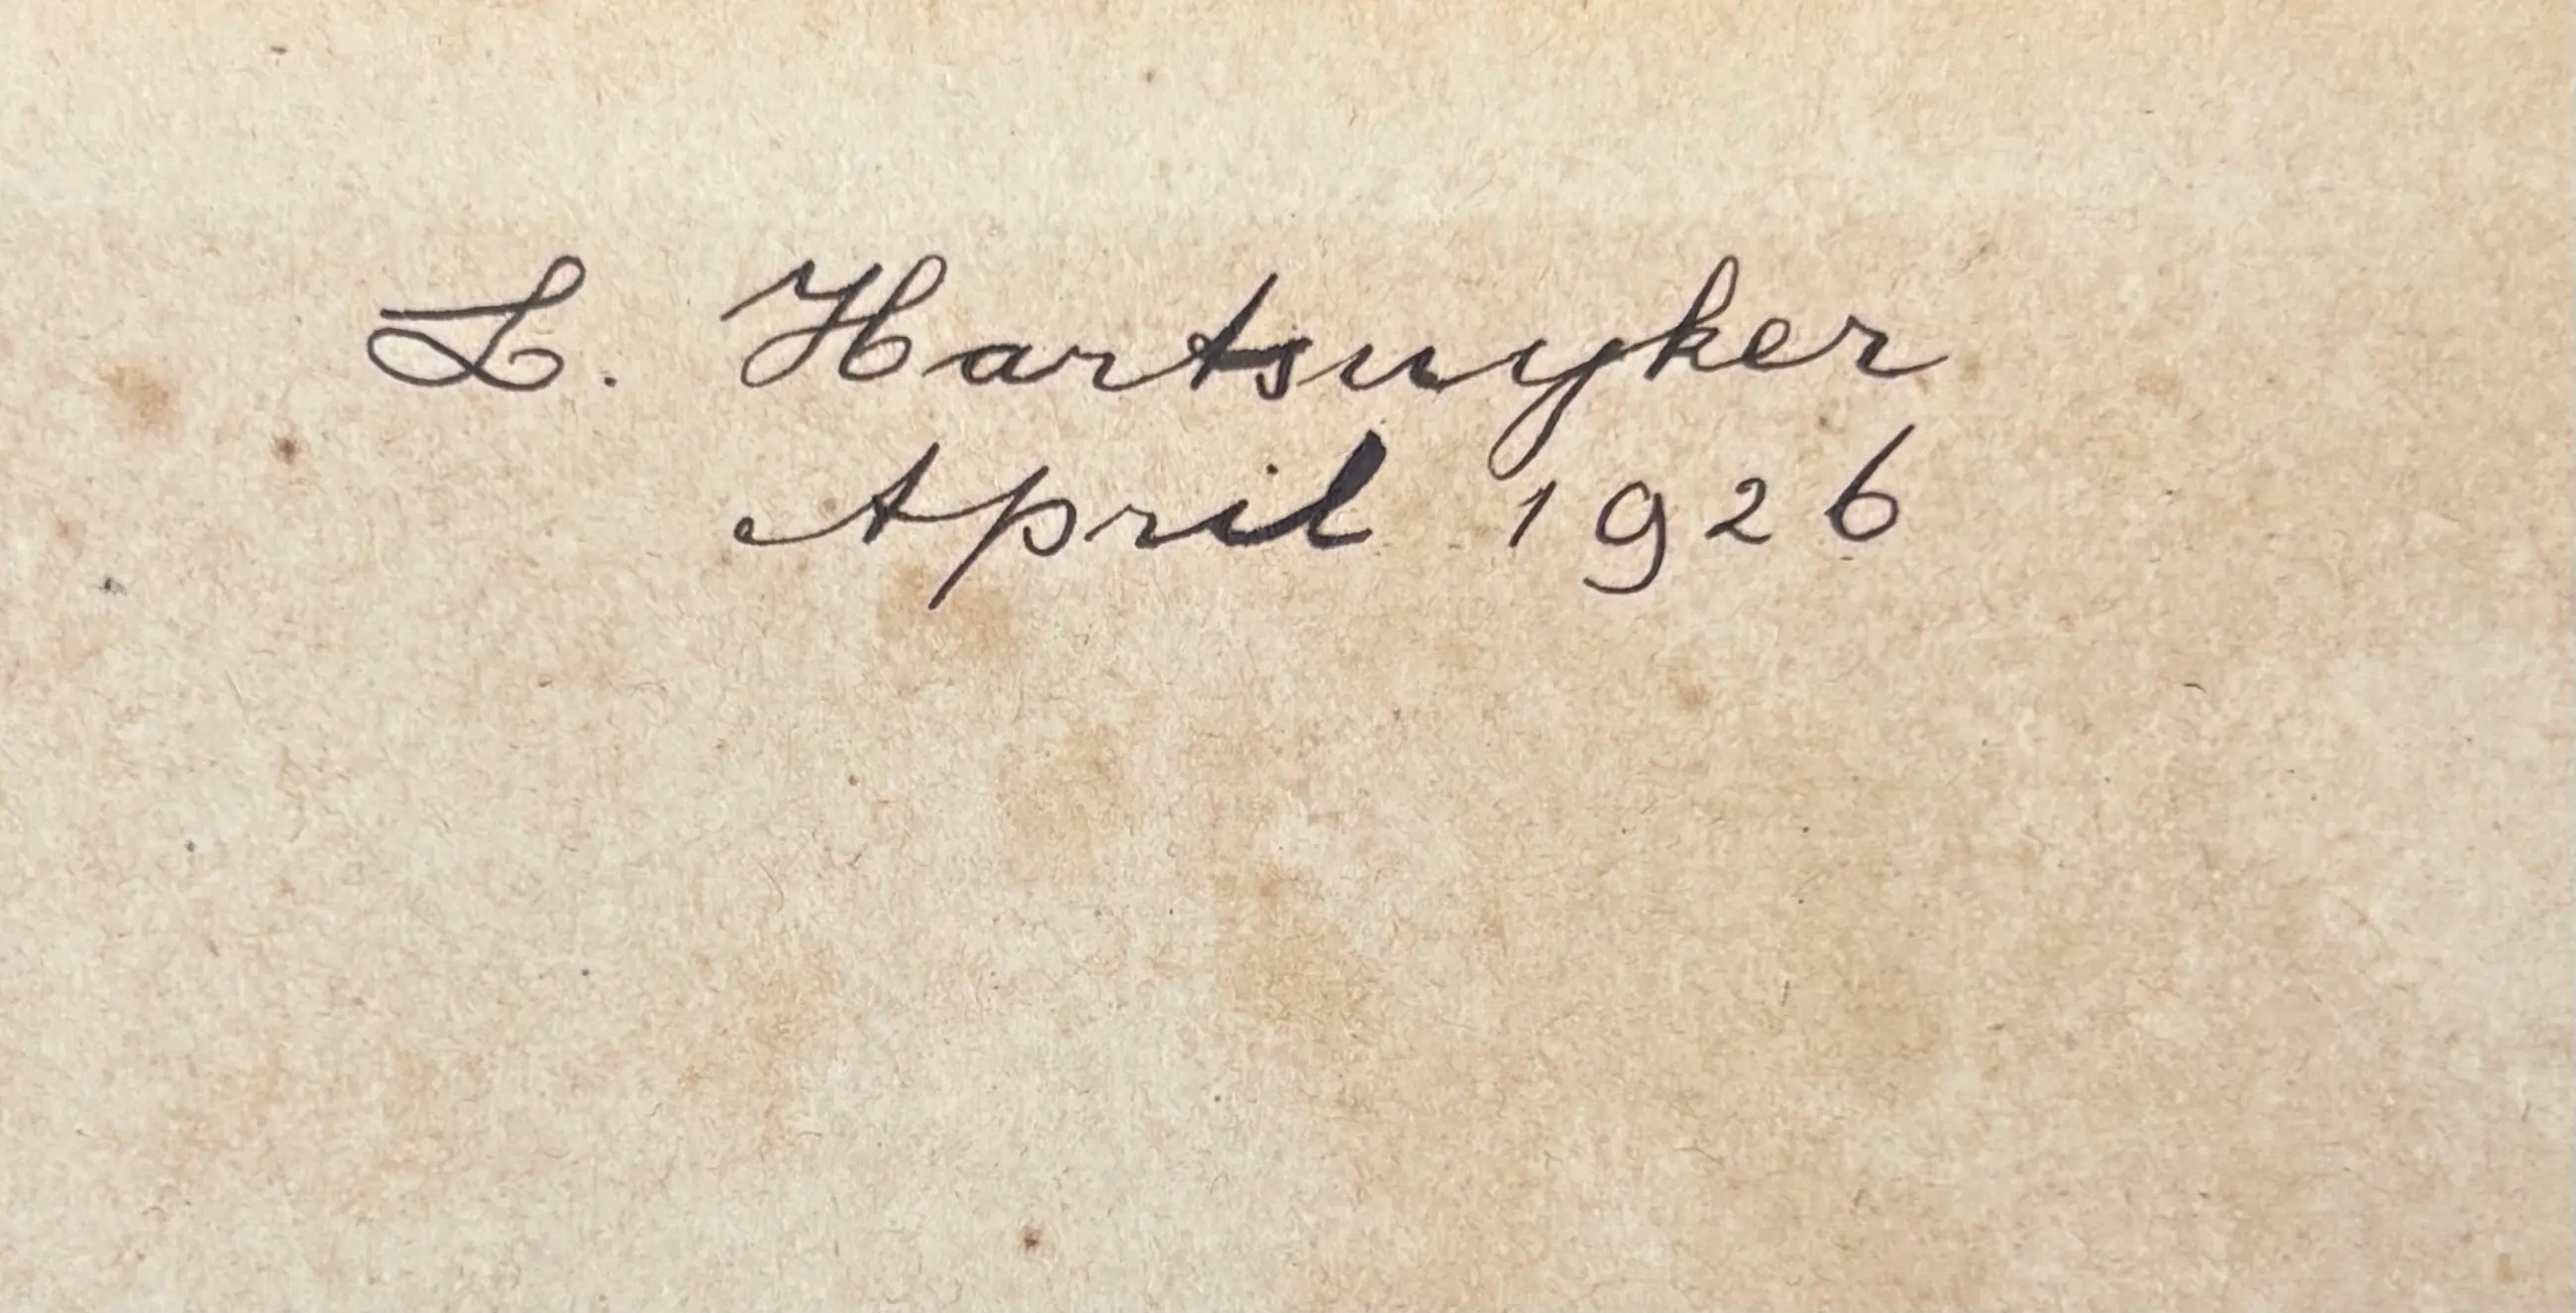 L. Hartsuyker
April 1926